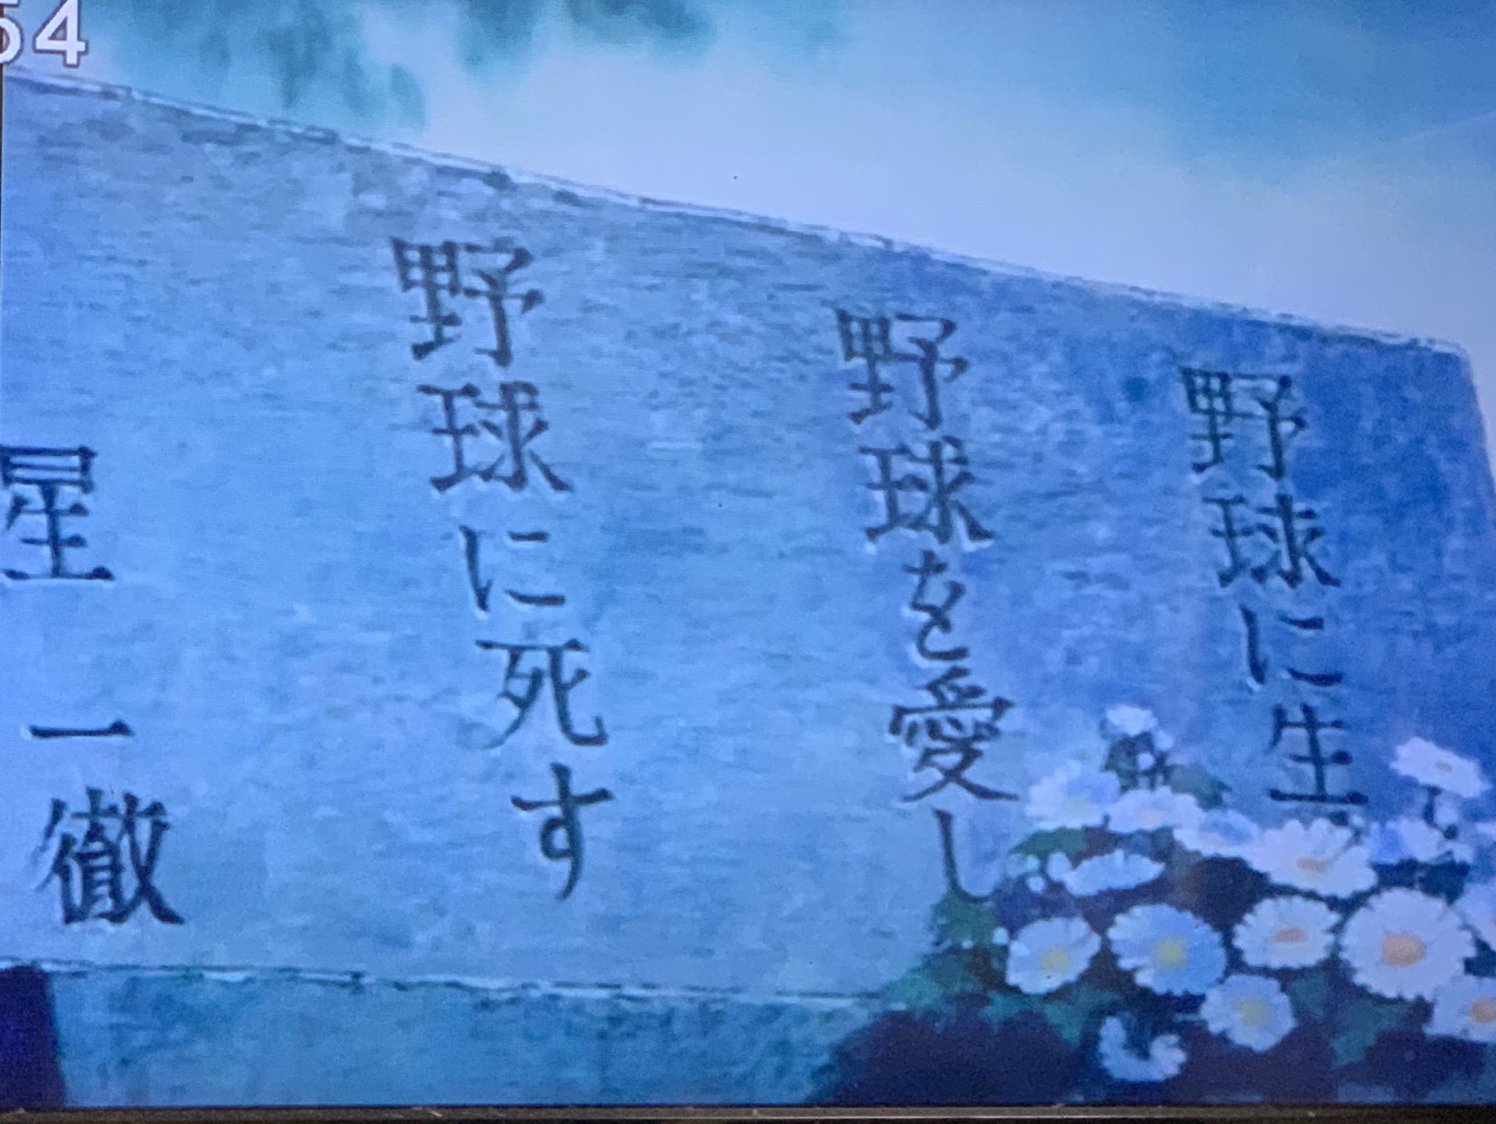 54
野球に生
野球を愛し
野球に死す
星 一徹